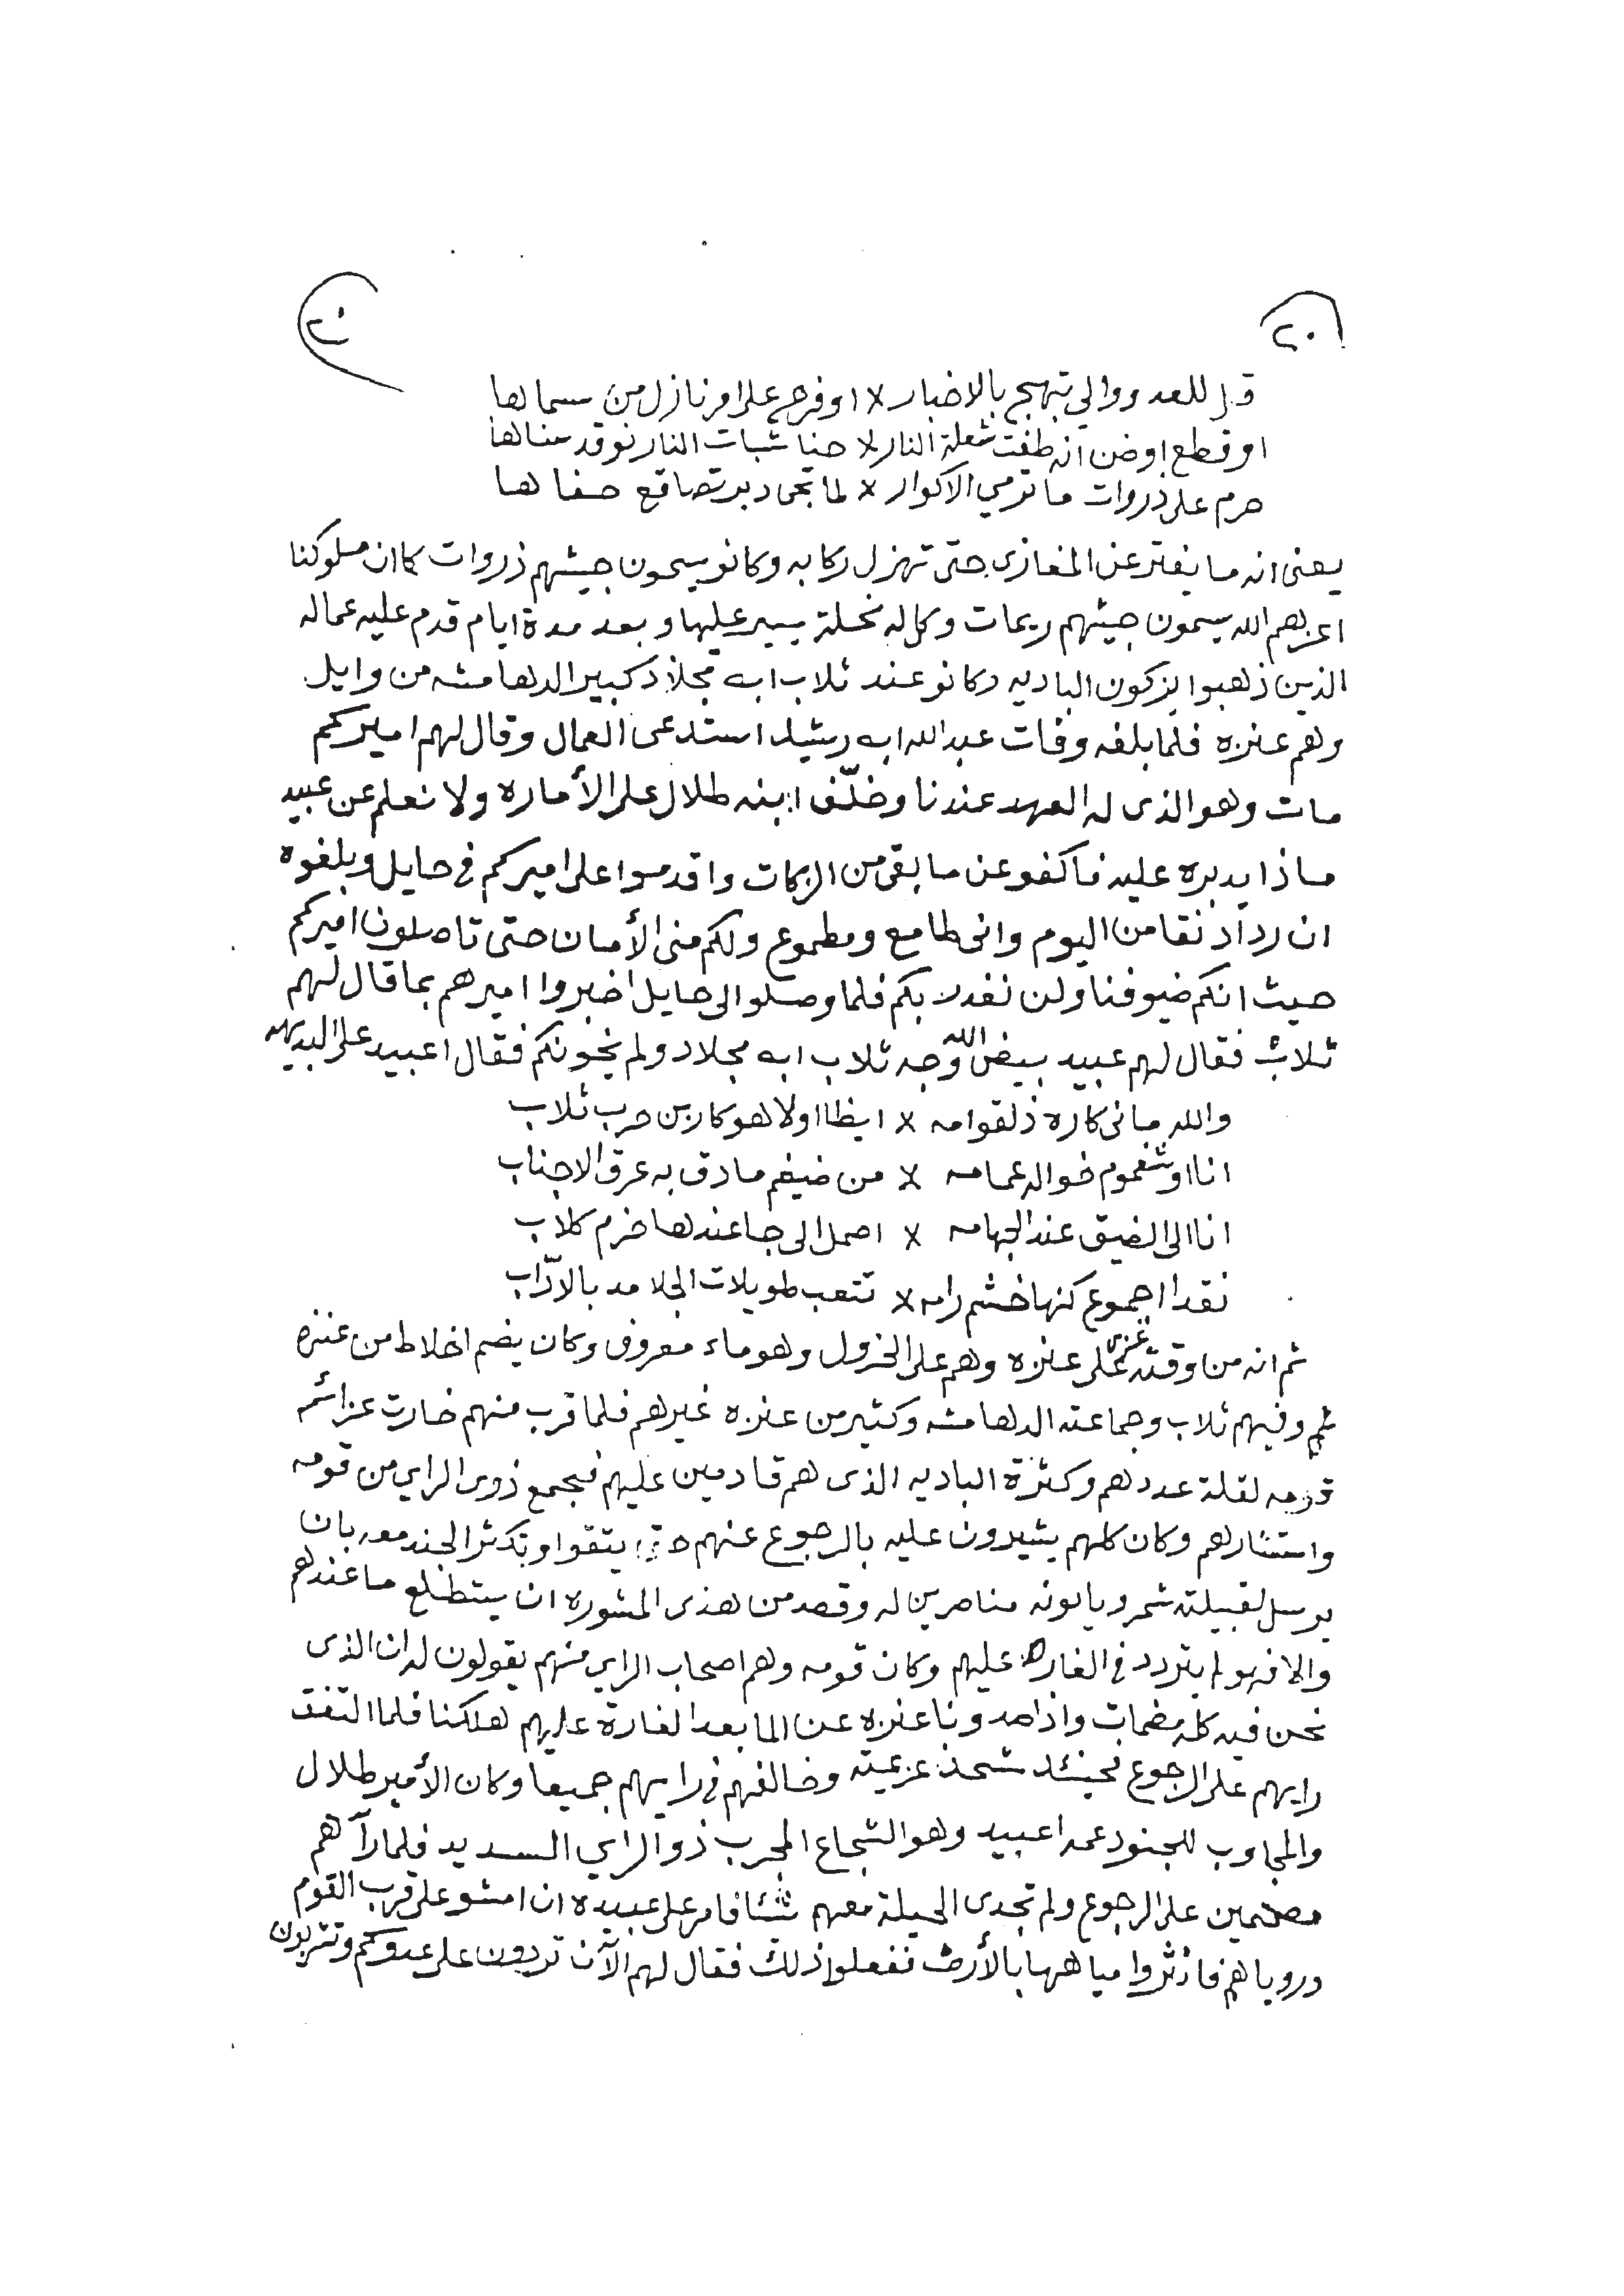 ٢٠
٢٠
قل للعدو والي تبهج بالاخبار × او فرح على امر نازل من سمالها
او قطع اوضن انه طفت شعلة النار × حنا شبات النار نوقد سنالها
حرم على ذروات ما ترمي الاكوار × لما تجى دبر تصاقع صفالها
يعنى انه ما يفتر عن المغازى حتى تهزل ركابه وكانو يسمون جيشهم ذروات كما ان ملوكنا
اعزهم الله يسمون جيشهم ريمات وكل له نحلة يسير عليها وبعد مدة ايام قدم عليه عماله
الذين ذهبوا يزكون الباديه وكانو عند ثلاب ابه مجلاد كبير الدهامشه من وايل
وهم عنزه فلما بلغه وفات عبدالله ابه رشيد استدعى العمال وقال لهم اميركم
مات وهو الذى له العهد عندنا وخلّف ابنه طلال على الأماره ولا نعلم عن عبيد
ماذا يدبره عليه فاكفو عن ما بقى من الزكات واقدموا على اميركم في حايل وبلغوه
ان رداد نقا من اليوم وانى طامع ومطموع ولكم منى الأمان حتى تاصلون اميركم
حيث انكم ضيوفنا ولن نغدر بكم فلما وصلو الى حايل اخبروا اميرهم بما قال لهم
ثلاب فقال لهم عبيد بيض الله وجه ثلاب ابه مجلاد ولم يخونكم فقال اعبيد على البديهه
والله مانى كاره ذلقوامه × ايظا اولا هو كاربن حرب ثلاب
انا اوشغموم خواله عمامه × من ضيغم مادق به عرق الاجناب
انا الى الضيق عند الجهامه × احمل الى جا عندها خزم كلاب
نقدا اجموع كنها خشم رامه × تتعب طويلات الجلامد بالادّاب
ثم انه من وقته غزى على عنزه وهم على الخزول وهو ماء معروف وكان يضم اخلاط من عنزه
وفيهم ثلاب وجماعته الدهامشه وكثير من عنزه غيرهم فلما قرب منهم خارت عزائم
قومه لقلة عددهم وكثرة الباديه الذى هم قادمين عليهم فجمع ذوى الراي من قومه
واستشارهم وكان كلهم يشيرون عليه بالرجوع عنهم يتقوا وتكثر الجند معه بان
يرسل لقبيلته شمر وياتونه مناصرين له وقصد من هذى المشوره ان يستطلع ما عندهم
والا فهو لم يتردد في الغاره عليهم وكان قومه وهم اصحاب الراي منهم يقولون له ان الذى
نحن فيه كله مضمات واذا حدونا عنزه عن الما بعد الغارة عليهم هلكنا فلما اتفق
رايهم على الرجوع فحينئد شحذ عزيمته وخالفهم في رايهم جميعا وكان الأمير طلال
والمجاوب للجنود عمه اعبيد وهو الشجاع المجرب ذو الراي السديد فلما رآهم
مصممين على الرجوع ولم تجدى الحيلة معهم شئا فامر على عبيده ان امشو على قرب القوم
ورويا هم فانثروا مياهها بالأرض ففعلوا ذلك فقال لهم الآن تردون على عدوكم وتشربون